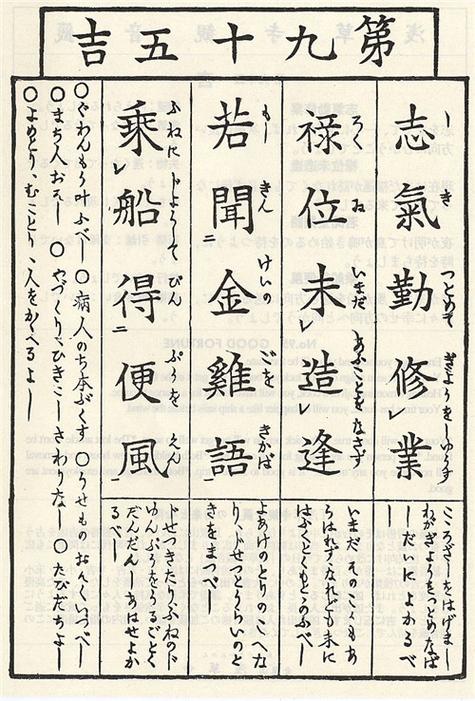 第九十五吉
しき つとめて ぎようをしうす
志氣勤修業
ろくゐ いまだ あふことをなさず
禄位未レ造レ逢
もし きんけいの ごを きかば
若聞二金雞語一
ふねにじようじて びんぷうを えん
乘レ船得二便風一
こゝろざしをはげまし
わがぎようをつとめなば
しだいによかるべ
し
いまだそのことあ
らはれずなれども末に
はふくとく
よあけのとりのこへな
り
きをまつべし
じせつきたりふねのじ
ゆんぷうをうるごとく
だんだんしあはせよか
るべし
〇くわんもう叶ふべし〇病人のち本ぶくす〇うせもの いづべし
〇まち人おそし〇やづくり、ひきこしさわりなし〇たびだちよし
〇よめとり、むことり、人をかゝへるよし